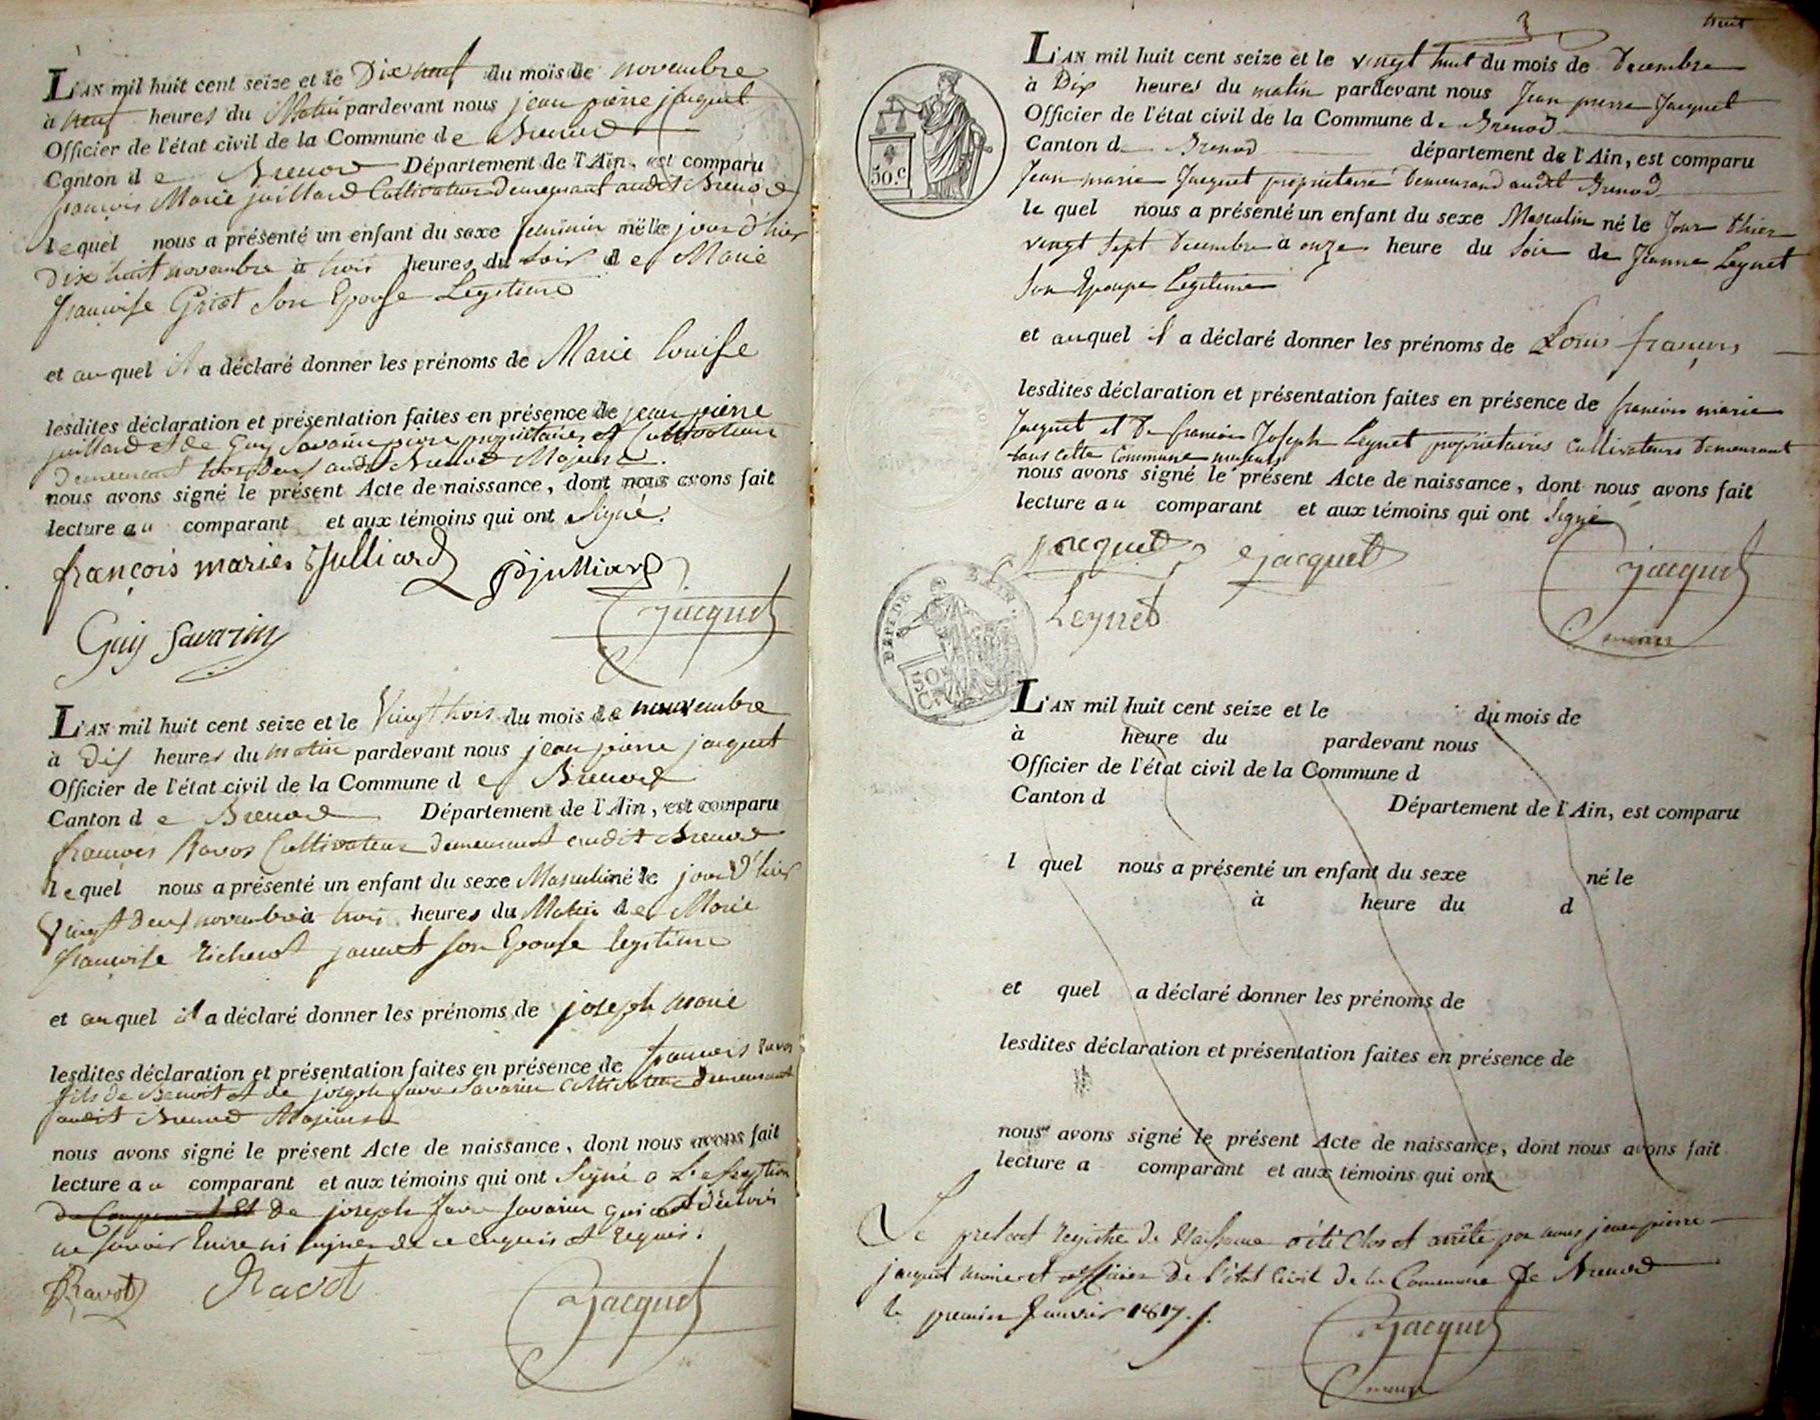 L'AN mil huit cent seize et le Dix neuf du mois de novembre
à neuf heures du Matin pardevant nous jean pierre jacquet
Officier de l'état civil de la Commune de Brenod
Canton de Brenod Département de l'Ain, est comparu
françois Marie juillard Cultivateur Demeurant audit Brenod
lequel nous a présenté un enfant du sexe feminin né le jour d'hier
Dix huit novembre à trois heures du Soir de Marie
françoise Son Epouse Legitime
et auquel il a déclaré donner les prénoms de Marie Louise
lesdites déclaration et présentation faites en présence de jean pierre
juillard et de Guy Savarin proprietaires et Cultivateurs
Demeurant audit Brenod Majeurs
nous avons signé le présent Acte de naissance, dont nous avons fait
lecture au comparant et aux témoins qui ont Signé.
françois marie Julliard pjulliard
Jacquet
Guy Savarin
L'AN mil huit cent seize et le Vingt trois du mois de novembre
à Dix heures du matin pardevant nous jean pierre jacquet
Officier de l'état civil de la Commune de Brenod
Canton de Brenod Département de l'Ain, est comparu
françois Ravot Cultivateur Demeurant audit Brenod
lequel nous a présenté un enfant du sexe Masculin né le jour d'hier
Vingt Deux novembre à trois heures du Matin de Marie
françoise jannet Son Epouse legitime
et auquel il a déclaré donner les prénoms de joseph marie
lesdites déclaration et présentation faites en présence de françois Ravot
fils de Benoit et de joseph favre Savarin Cultivateurs Demeurant
audit Brenod Majeurs
nous avons signé le présent Acte de naissance, dont nous avons fait
lecture au comparant et aux témoins qui ont Signé a L'exception
de joseph favre Savarin qui a déclaré
ne savoir Ecrire ni signer de ce enquis et requis.
Ravot Ravot
Jacquet
huit
3
L'AN mil huit cent seize et le vingt huit du mois de Decembre
à Dix heures du matin pardevant nous Jean pierre Jacquet
Officier de l'état civil de la Commune de Brenod
Canton de Brenod département de l'Ain, est comparu
Jean marie Jacquet proprietaire Demeurand audit Brenod
le quel nous a présenté un enfant du sexe Masculin né le Jour Dhier
vingt Sept Decembre à onze heure du Soir de Jeanne Leynet
Son Epouse Legitime
et auquel il a déclaré donner les prénoms de Louis françois
lesdites déclaration et présentation faites en présence de francois marie
Jacquet et De francois Joseph Leynet proprietaires Cultivateurs Demeurant
dans cette Commune majeurs
nous avons signé le présent Acte de naissance, dont nous avons fait
lecture au comparant et aux témoins qui ont Signé
jacquet ejacquet Jacquet
maire
Leynet
50.c
50
L'AN mil huit cent seize et le du mois de
à heure du pardevant nous
Officier de l'état civil de la Commune d
Canton d Département de l'Ain, est comparu
l quel nous a présenté un enfant du sexe né le
à heure du d
et quel a déclaré donner les prénoms de
lesdites déclaration et présentation faites en présence de
nous avons signé le présent Acte de naissance, dont nous avons fait
lecture a comparant et aux témoins qui ont
Le present registre de Naissance a été Clos et arrêté par nous jean pierre
jacquet maire et officier De l'état Civil De la Commune De Brenod
le premier Janvier 1817.
Jacquet
maire